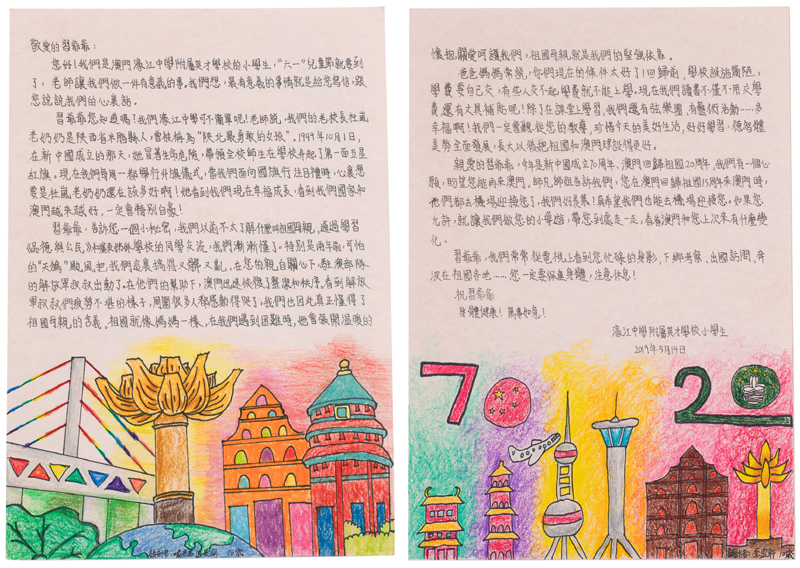 敬愛的習爺爺：
您好！我們是澳門濠江中學附屬英才學校的小學生，“六一”兒童節就要到
了，老師讓我們做一件有意義的事，我們想，最有意義的事情就是給您寫信，跟
您說說我們的心裏話。
習爺爺您知道嗎？我們濠江中學可不簡單呢！老師說，我們的老校長杜嵐
老奶奶是陝西省米脂縣人，曾被稱為“陝北最勇敢的女孩”。1949年10月1日，
在新中國成立的那天，她冒着生命危險，帶領全校師生在學校升起了第一面五星
紅旗。現在我們每周一都舉行升旗儀式，當我們面向國旗行注目禮時，心裏想
要是杜嵐老奶奶還在該多好啊！她看到我們現在幸福成長，看到我們國家和
澳門越來越好，一定會特別自豪！
習爺爺，告訴您一個小秘密，我們以前不太了解什麼叫祖國母親，通過學習
《品德與公民》和與姊妹學校的同學交流，我們漸漸懂了。特別是前年刮可怕
的“天鴿”颱風，把我們這裏搞得又髒又亂，在您的親自關心下，駐澳部隊
的解放軍叔叔出動了。在他們的幫助下，澳門迅速恢復了整潔和秩序，看到解放
軍叔叔們疲勞不堪的樣子，周圍很多人都感動得哭了，我們也因此真正懂得了
祖國母親的含義。祖國就像媽媽一樣，在我們遇到困難時，她會張開溫暖的
懷抱，關愛呵護我們，祖國母親就是我們的堅強依靠。
爸爸媽媽常說，你們現在的條件太好了！回歸前，學校設施簡陋，
學費要自己交，有些人交不起學費就不能上學。現在我們讀書不僅不用交學
費，還有文具補貼呢！除了在課堂上學習，我們還有弦樂團、有藝術活動……多
幸福啊！我們一定會聽從您的教導，珍惜今天的美好生活，好好學習，德智體
美勞全面發展，長大以後把祖國和澳門建設得更好。
親愛的習爺爺，今年是新中國成立70周年、澳門回歸祖國20周年，我們有一個心
願，盼望您能再來澳門。師兄師姐告訴我們，您在澳門回歸祖國15周年來澳門時，
他們都去機場迎接您了，我們好羨慕！真希望我們也能去機場迎接您。如果您
允許，就讓我們做您的小導遊，帶您到處走一走，看看澳門和您上次來有什麼變
化。
習爺爺，我們常常從電視上看到您忙碌的身影，下鄉考察、出國訪問、奔
波在祖國各地……您一定要保重身體，注意休息！
祝習爺爺
身體健康！萬事如意！
濠江中學附屬英才學校小學生
2019年5月14日
70
20